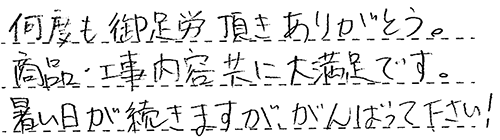 何度も御足労頂きありがとう。
商品・工事内容共に大満足です。
暑い日が続きますが、がんばって下さい!